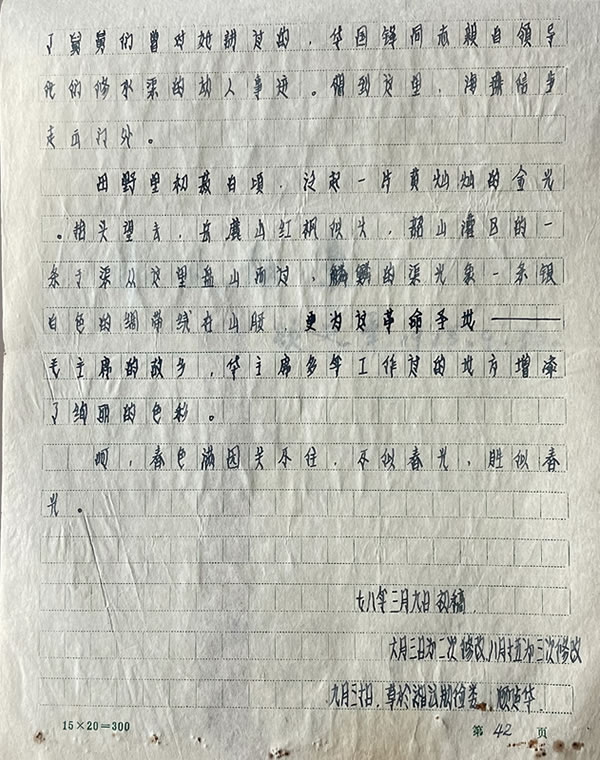 了舅舅们曾对她讲过的，华国锋同志亲自领导
他们修水渠的动人事迹。借到这里，海珊信步
走出门外。
田野里初 百顷，泛起一片黄灿灿的金光
。抬头望去，岳麓山红枫似火，韶山灌区的一
条干渠从这里盘山而过，鳞鳞的渠光象一条银
白色的绸带绕在山腰，更为这革命圣地——
毛主席的故乡，华主席多年工作过的地方增添
了绚丽的色彩。
啊，春色满园关不住，不似春光，胜似春
光。
七八年三月九日初稿
六月三日为二次修改，八月十五为三次修改
九月三十日，草于湘
15×20=300
第 42 页